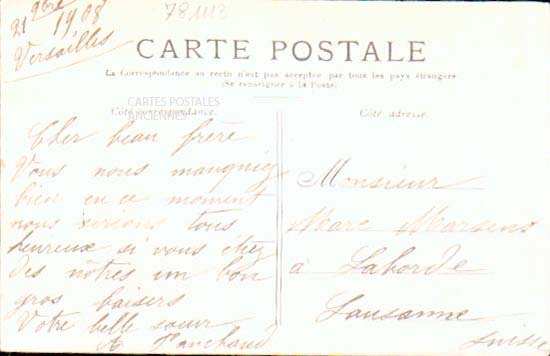 21 9bre 1908
Versailles
78113
CARTE POSTALE
La Correspondance au recto n'est pas acceptée par tous les pays étrangers
(Se renseigner à la Poste)
CARTES POSTALES
ANCIENNES
Côté correspondance.
Cher beau frère
Vous nous manquiez
bien en ce moment
nous serions tous
heureux si vous étiez
des nôtres un bon
gros baisers
Votre belle sœur
A Panchaud
Côté adresse.
Monsieur
Marc
à Laborde
Lausanne
Suisse